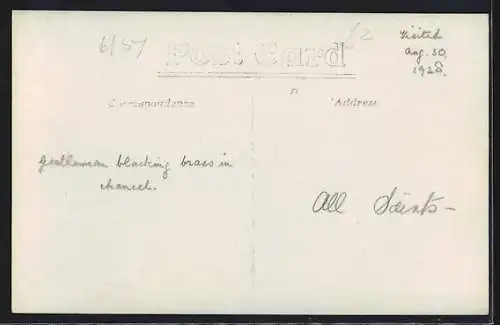 6/57
£2
Visited
Aug. 30,
1928.
Post Card
Correspondence
Address
Gentleman blacking brass in
chancel.
All Saints -